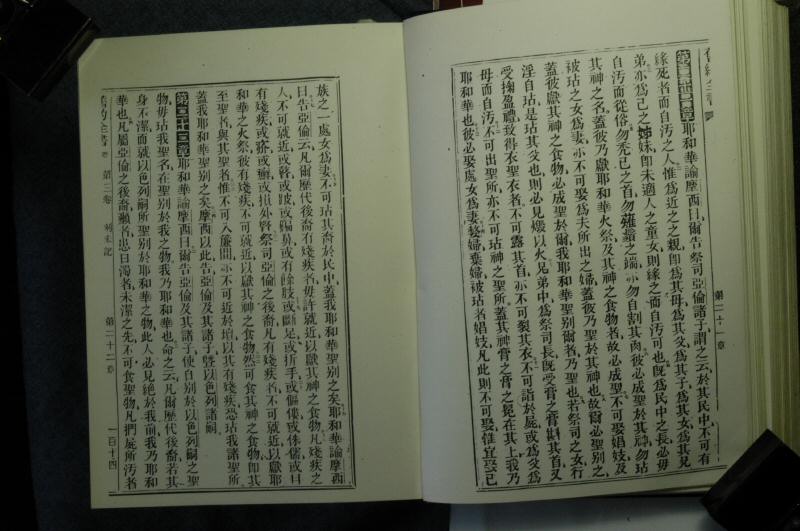 舊約全書
第二十一章
第二十一章耶和華諭摩西曰爾告祭司亞倫諸子謂之云於其民中不可有
緣死者而自汚之人惟爲近之之親卽爲其母爲其父爲其子爲其女爲其兄
弟亦爲己之姊妹卽未適人之童女則緣之而自汚可也旣爲民中之長必毋
自汚而從俗勿禿己之首勿薙鬚之端亦勿自割其肉彼必成聖於其神勿玷
其神之名蓋彼乃獻耶和華火祭及其神之食物者故必成聖不可娶娼妓及
被玷之女爲妻亦不可娶爲夫所出之婦蓋彼乃聖於其神也故爾必聖別之
蓋彼獻其神之食物必成聖於爾我耶和華聖別爾者乃聖也若祭司之女行
淫自玷是玷其父也則必見燬以火兄弟中爲祭司長旣受膏之膏斟其首又
受掬盈禮致得衣聖衣者不可露其首亦不可裂其衣不可詣於屍或爲父爲
母而自汚不可出聖所亦不可玷神之聖所蓋其神膏之膏之冕在其上我乃
耶和華也彼必娶處女爲妻嫠婦棄婦被玷者娼妓凡此則不可娶惟宜娶己
族之一處女爲妻不可玷其裔於民中蓋我耶和華聖別之矣耶和華諭摩西
曰告亞倫云凡爾歷代後裔有殘疾者毋許就近以獻其神之食物凡殘疾之
人不可就近或瞽或跛或陽鼻或有餘肢或斷足或折手或傴僂或侏儒或目
有殘疾或癬或疥或損外腎祭司亞倫之後裔凡有殘疾者不可就近以獻耶
和華之火祭彼有殘疾不可就近以獻其神之食物然可食其神之食物卽其
至聖者與其聖者惟不可入簾間亦不可近於壇以其有殘疾恐玷我諸聖所
蓋我耶和華聖別之矣摩西以此告亞倫及其諸子曁以色列諸嗣
第二十二章耶和華諭摩西曰爾告亞倫及其諸子使自別於以色列嗣之聖
物毋玷我聖名在聖別於我之物我乃耶和華也命之云凡爾歷代後裔若其
身不潔而就以色列嗣所聖別於耶和華之物此人必見絕於我前我乃耶和
華也凡屬亞倫之後裔癩者患白濁者未潔之先不可食聖物凡捫屍所汚者
舊約全書
第三卷
利未記
第二十二章
一百十四